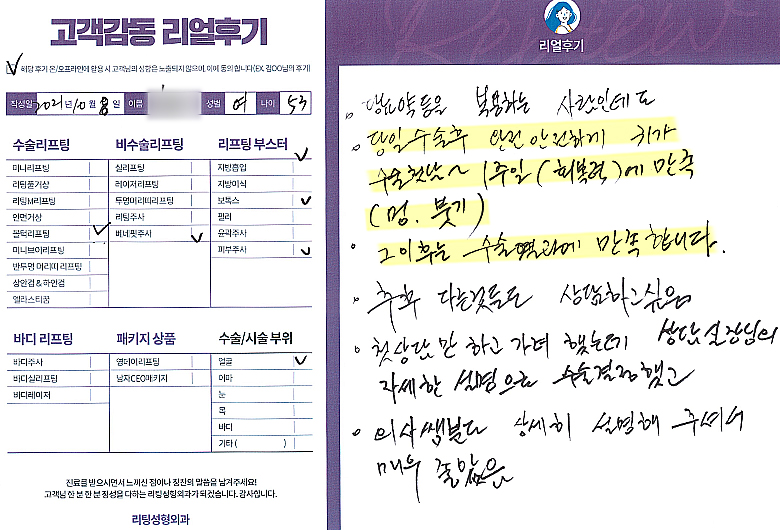 고객감동 리얼후기
해당 후기 온/오프라인에 활용 시 고객님의 성함은 노출되지 않으며, 이에 동의합니다(EX. 김OO님의 후기)
작성일 2021년 10월 8일 이름 성별 여 나이 53
수술리프팅
미니리프팅
리팅풀거상
리팅M리프팅
안면거상
문턱리프팅
미니브이리프팅
반투명 이리띠 리프팅
상안검 & 하안검
엘라스티꿈
비수술리프팅
실리프팅
레이저리프팅
투명이리띠리프팅
리팅주사
버네핏주사
리프팅 부스터
지방흡입
지방이식
보톡스
필러
윤곽주사
피부주사
바디 리프팅
바디주사
바디실리프팅
바디레이저
패키지 상품
영데이리프팅
남자CEO패키지
수술/시술 부위
얼굴
이마
눈
목
바디
기타 ( )
진료를 받으시면서 느끼신 점이나 칭찬의 말씀을 남겨주세요!
고객님 한 분 한 분 정성을 다하는 리팅성형외과가 되겠습니다. 감사합니다.
리팅성형외과
리얼후기
복용하는 사람인데도
당일 수술후 안전하게 귀가
수술첫날~ 1주일 (회복력)에 만족
(멍. 붓기)
그 이후는 수술효과에 만족합니다.
추후 다른것들도 상담하고싶음
첫상담만 하고 가려 했는데 상담실장님의
자세한 설명으로 수술결정했고
의사쌤분도 상세히 설명해 주셔서
매우 좋았음